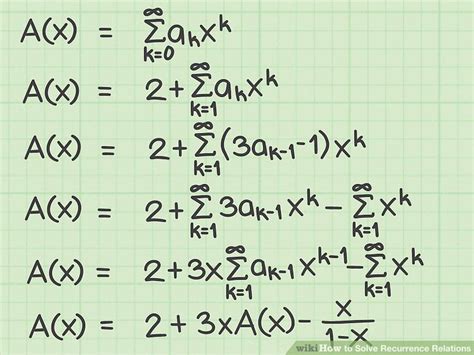 A(x) = ∞Σk=0 aₖxᵏ
A(x) = 2 + ∞Σk=1 aₖxᵏ
A(x) = 2 + ∞Σk=1 (3aₖ₋₁ - 1)xᵏ
A(x) = 2 + ∞Σk=1 3aₖ₋₁xᵏ - ∞Σk=1 xᵏ
A(x) = 2 + 3x ∞Σk=1 aₖ₋₁xᵏ⁻¹ - ∞Σk=1 xᵏ
A(x) = 2 + 3xA(x) - x/(1-x)
wiki How to Solve Recurrence Relations